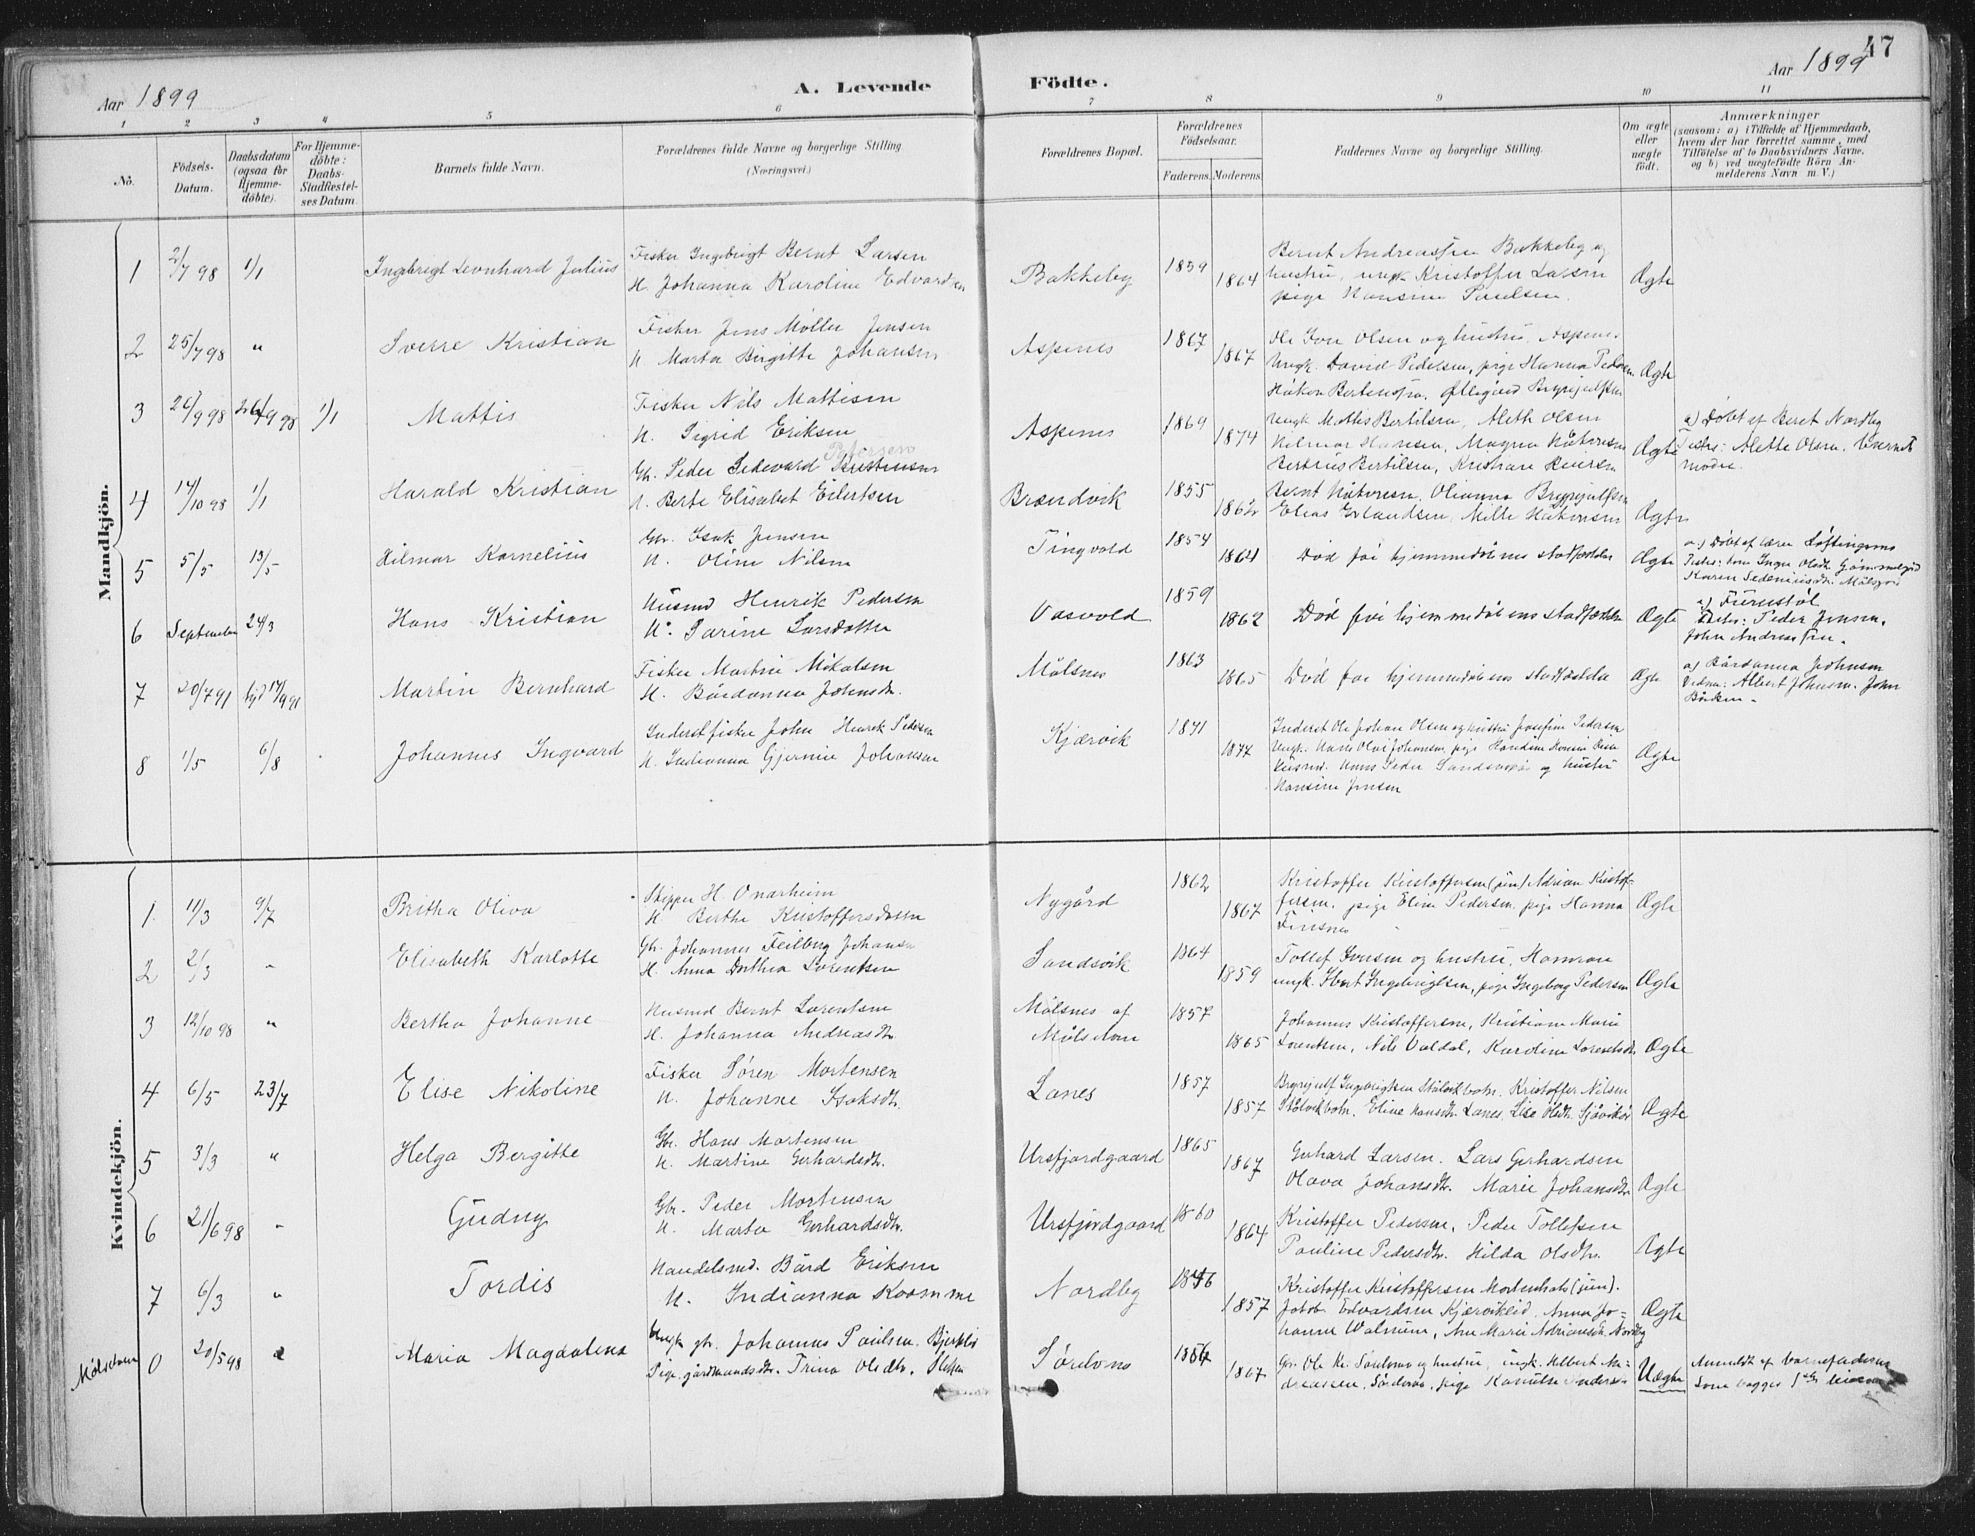 47
Aar 1899
A. Levende Födte.
Aar 1899
1 2 3 4 5 6 7 8 9 10 11
No.
Födsels-
Datum.
Daabsdatum
(ogsaa for
Hjemme-
døbte).
For Hjemme-
døbte:
Daabs-
Stadfæstel-
ses Datum.
Barnets fulde Navn.
Forældrenes fulde Navne og borgerlige Stilling
(Næringsvei.)
Forældrenes Bopæl.
Forældrenes
Födselsaar.
Faderens. Moderens.
Faddernes Navne og borgerlige Stilling.
Om ægte
eller
uægte
födt.
Anmærkninger
(saasom: a) i Tilfælde af Hjemmedaab,
hvem der har forrettet samme, med
Tilföielse af to Daabsvidners Navne,
og b) ved uægtefödte Börn An-
melderens Navn m. V.)
Mandkjön.
1 2/7 98 1/1 Ingebrigt Leonhard Julius
Fisker Ingebrigt Bernt Larsen
H. Johanna Karoline Edvardsen
Bakkeby 1859 1864
Bernt Andreassen Bakkeby og
hustru, ungk. Kristoffer Larsen
pige Hansine Paulsen.
Ægte
2 25/7 98 " Sverre Kristian
Fisker Jens Möller Jensen
H. Marta Birgitte Johansen
Aspenes 1867 1867
Ole Iver Olsen og hustru, Aspenes
Ungk. David Pedersen, pige Hanna Pedersen
Håkon Bertensen,
Ægte
3 26/9 98 26/9 98 1/1 Mattis
Fisker Nils Mattisen
H. Sigrid Eriksen
Aspenes 1869 1874
Ungk Mattis Bertilsen, Aleth Olsen
Hilmar Hansen, Magna Håkensen
Berteus Bertilsen, Kristiane Reiersen
Ægte
a) Döbt af Beret Nordby
Alette Olsen, barnets
moder.
4 14/10 98 1/1 Harald Kristian
Petersen
Gbr. Peder Sedevard Kristensen
H. Berte Elisabet Eilertsen
Brændvik 1855 1862
Bernt Håkensen, Olianna Brynjulfsen
Elias Erlandsen, Milla Håkensen
Ægte
5 5/5 13/5 Hilmar Kornelius
Gbr. Isak Jensen
H. Oline Nilsen
Tingvold 1854 1864
Död för hjemmedåbens stadfæstelse
Ægte
a) Döbt af lærer
Karen
6 September 24/3 Hans Kristian
Husmd Henrik Pedersen
H. Sarine Larsdatter
Vasvold 1859 1862
Död för hjemmedåbens stadfæstelse
Ægte
a) Furustöl
Peder Jensen,
John Andreassen.
7 20/7 91 14/9 91 Martin Bernhard
Fisker Martin Mikalsen
H. Bårdanna Johnsdtr.
Målsnes 1863 1865
Död för hjemmedåbens stadfæstelse
Ægte
a) Bårdanna Johnsen
Vidner: Albert Johnsen. John
8 1/5 6/8 Johannes Ingvard
Inderst fisker John Henrik Pedersen
H. Indianna Gjermine Johansen
Kjærvik 1871 1877
Inderst Ole Johan Olsen og hustru Josefine Pedersen
Ungk. Hans Olai Johansen, pige
Husmd. Hans Peder Sandsvik og hustru
Hansine Jensen
Ægte
Kvindekjön.
1. 11/3 9/7 Britha Oliva
Skipper H. Onarheim
H Berthe Kristoffersdatter
Nygård 1862 1867
Kristoffer Kristoffersen (jun) Adrian Kristof-
fersen, pige Eline Pedersen, pige Hanna
Finsnes
Ægte
2 2/3 " Elisabeth Karlotte
Gbr. Johannes Feilberg Johansen
H. Anna Dorthea Lorentsen
Sandsvik 1864 1859
Tollef Iversen og hustru, Hamran
ungk. Ingebrigtsen, pige Ingeborg Pedersen
Ægte
3 12/10 98 " Bertha Johanne
Husmd Bernt Lorentsen
H. Johanna Andreasdtr.
Målsnes af
Målselven 1857 1865
Johannes Kristoffersen, Kristiane Marie
Lorentsen, Nils Valdal, Karoline Lorentsdtr.
Ægte
4 6/5 23/7 Elise Nikoline
Fisker Sören Mortensen
H. Johanne Isaksdtr.
Lanes 1857 1857
Brynjulf Ingebrigtsen Stålvikbotn. Kristoffer Nilsen
Stålvikbotn. Eline Hansdtr. Lanes, Lise Olsdtr. Sjåvikör
Ægte
5 3/3 " Helga Bergitte
Gbr. Hans Mortensen
H. Martine Gerhardsdtr.
Ursfjordgaard 1865 1867
Gerhard Larsen. Lars Gerhardsen
Olava Johansdtr. Marie Johansdtr.
Ægte
6 21/6 98 " Gudny
Gbr. Peder Mortensen
H. Marta Gerhardsdtr.
Ursfjordgaard 1860 1864
Kristoffer Pedersen, Peder Tollefsen
Pauline Pedersdtr. Hilda Olsdtr.
Ægte
7 6/3 " Tordis
Handelsmd. Bård Eriksen
H. Indianna Koomme
Nordby 1846 1857
Kristoffer Kristoffersen Mortenhals (jun).
Jakob Edvardsen Kjærviklid, Anna Jo-
hanne Walnum, Ane Marie Adriansdtr. Nordby
Ægte
Målselven 0 20/5 98 " Maria Magdalena
Ungk. gbr. Johannes Paulsen. Bjerklid
Pige, gårdmandsdtr. Trina Olsdtr.
Sördvnes 1867
Gbr. Ole Kr. og hustru, ungk. Helbert An-
dreassen, pige Andersen
Uægte
Anmeldt af barnefaderen
som begges 1ste leiermaal